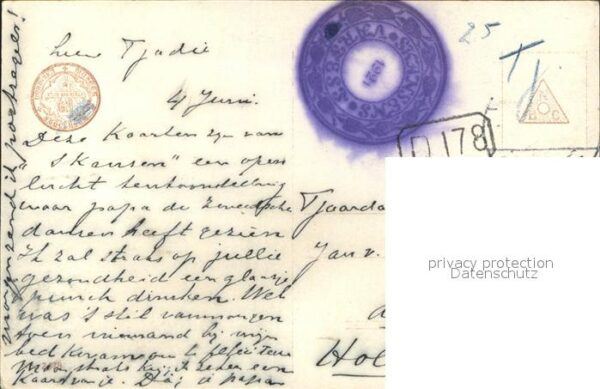 morgen zend ik postzegels!
lieve Tjadie
4 Juni.
Deze Kaarten zijn van
"Skansen" een open
lucht tentoonstelling
waar papa de Zweedsche
dansen heeft gezien
Ik zal straks op jullie
gezondheid een glaasje
punch drinken. Wel
was 't stil vanmorgen
toen niemand bij mijn
bed kwam om te feliciteeren
Maar straks krijg ik zeker een
Kaart van je. Dag papa
25
T
D 178
Tjaarda
Jan v.
Hol
privacy protection
Datenschutz